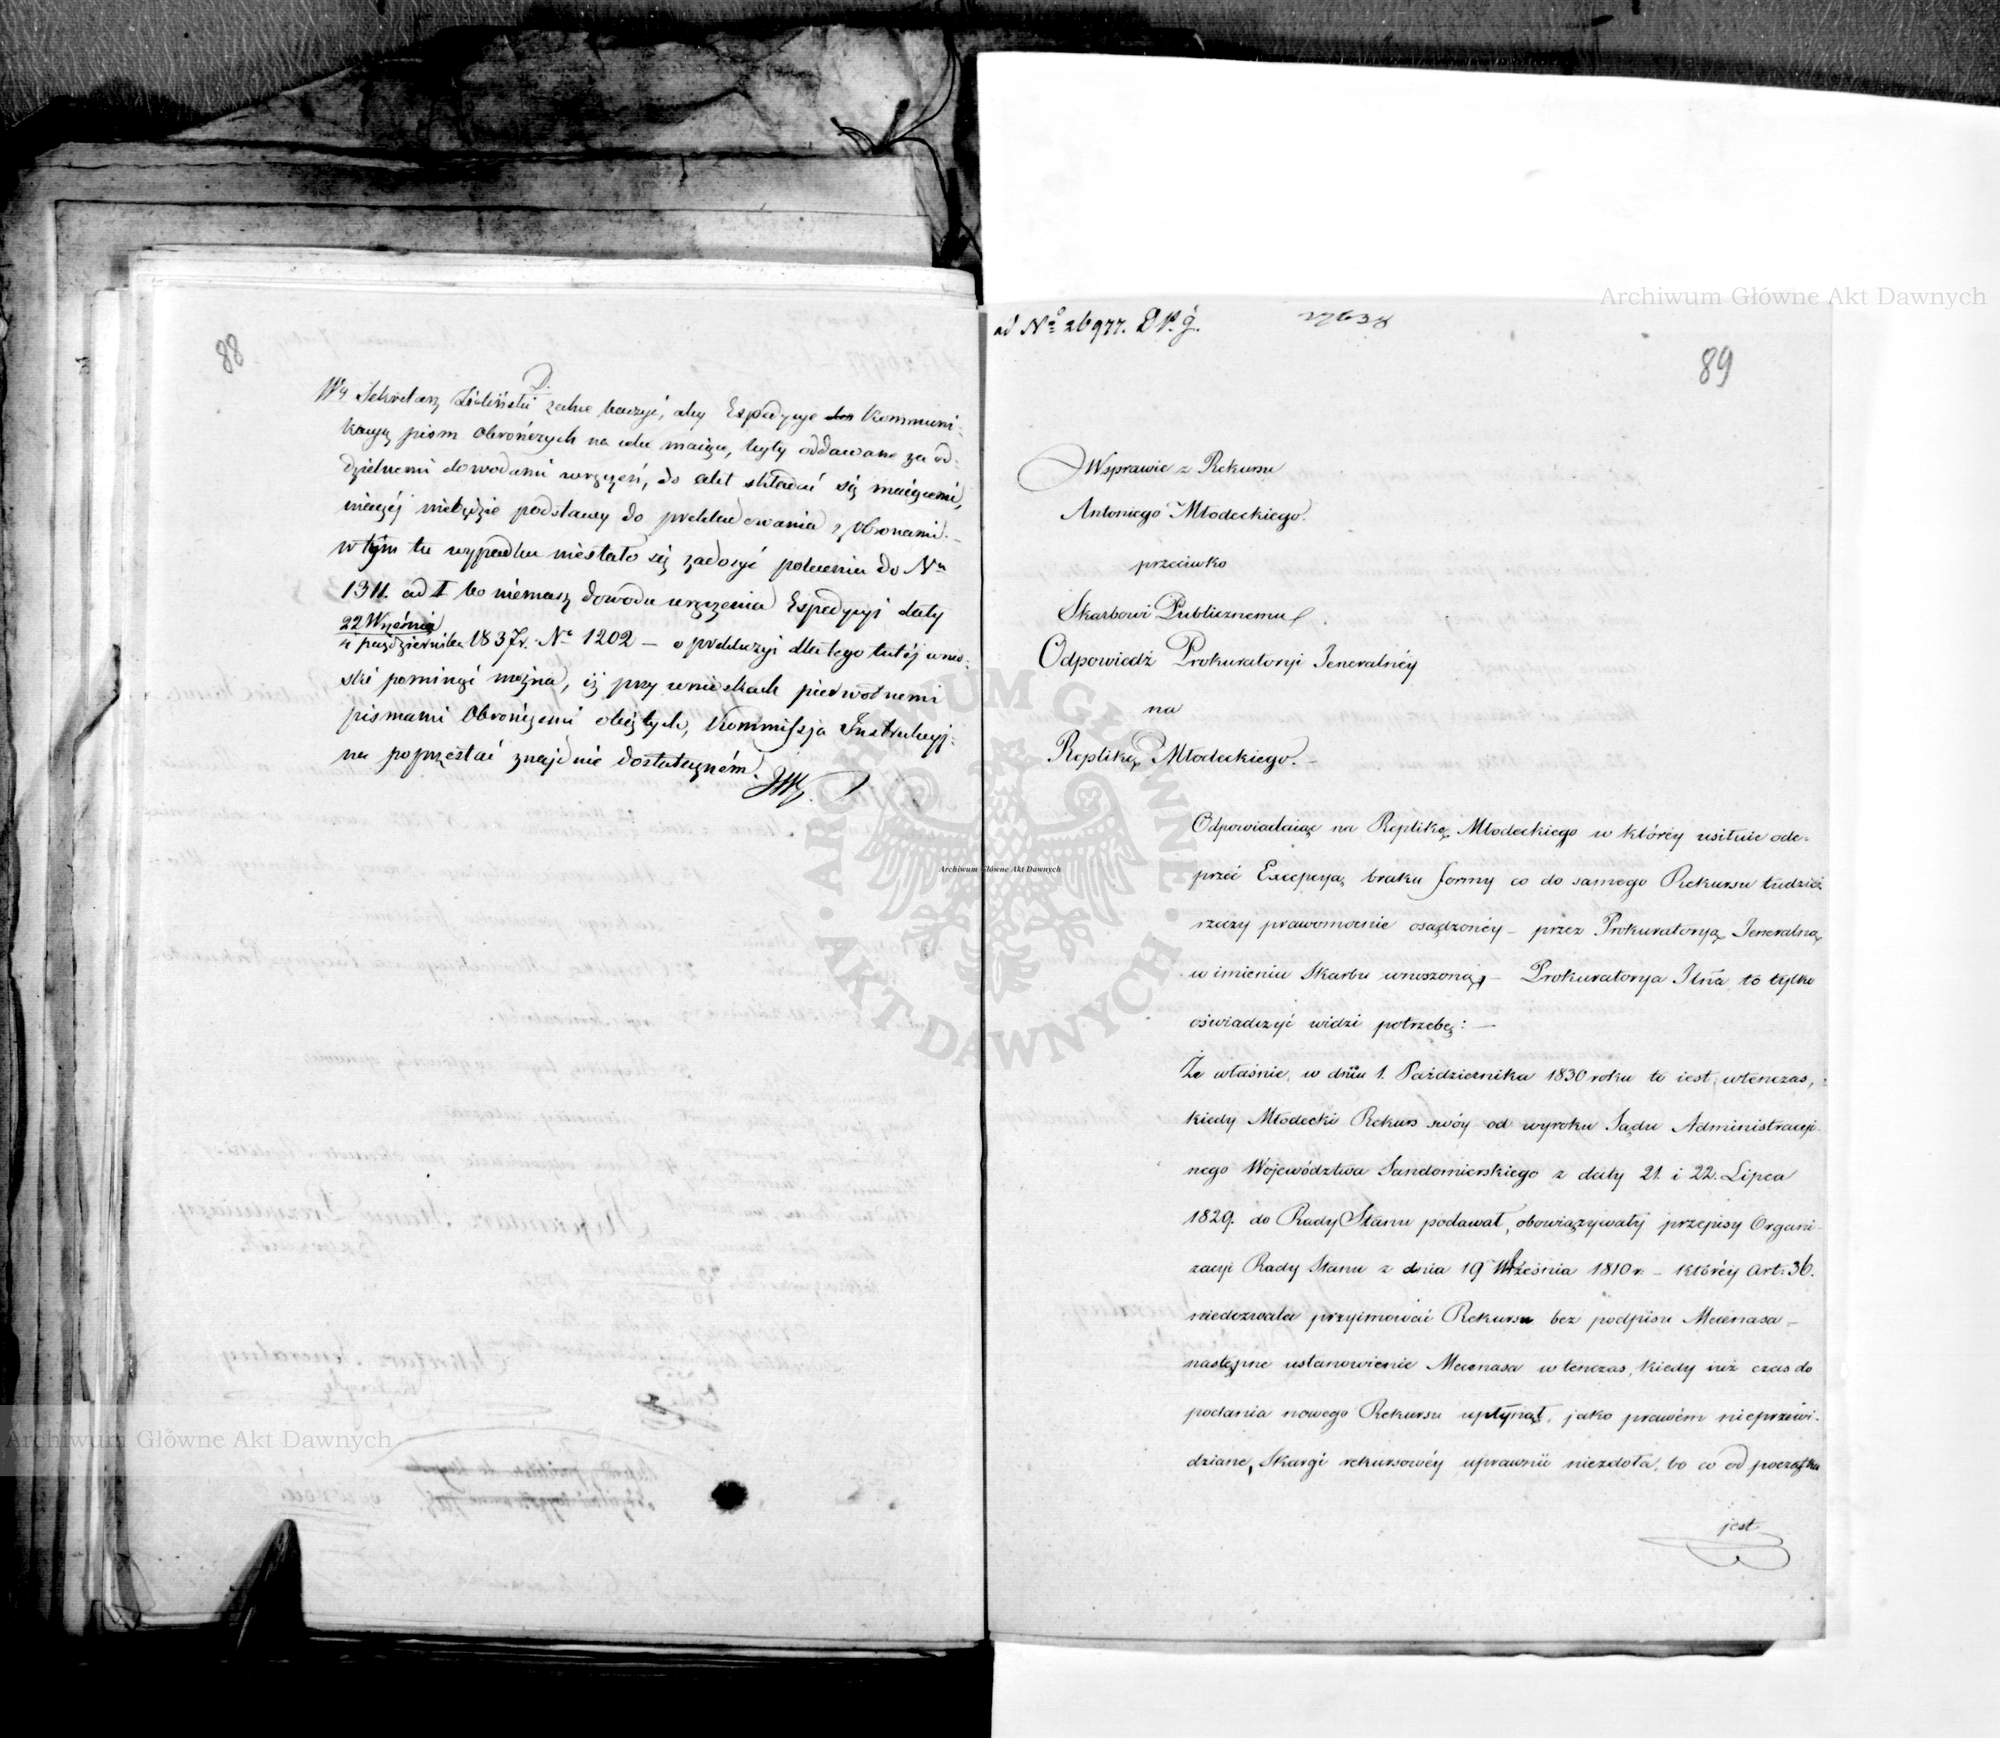 88
Wy Sekretarz Zieliński zechce baczyć, aby Expedycye Kommuni-
kacyą pism Obrończych na celu maiące, były oddawane za od-
dzielnemi dowodami wręczeń, do akt składać się maiącemi,
inaczéj niebędzie podstawy do prekludowania z Obronami. –
w tym tu wypadku niestało się zadosyć poleceniu do Nru
1311. ad I bo niemasz dowodu wręczenia Expedycyi daty
22 Września
4 października 1837 r. Nr 1202 – o prekluzyi dlatego tutéj wnio-
ski pominąć można, iż przy wnioskach pierwotnemi
pismami Obrończemi objętych, Kommissja Instrukcyj-
na poprzestać znajdzie dostateczném.
ad No 26977. D P. G.
27638
89
W sprawie z Rekursu
Antoniego Młodeckiego.
przeciwko
Skarbowi Publicznemu
Odpowiedź Prokuratoryi Jeneralnéy
na
Replikę Młodeckiego. –
Odpowiadaiąc na Replikę Młodeckiego w któréy usiłuie ode-
przeć Excepcyą braku formy co do samego Rekursu tudzież
rzeczy prawomocnie osądzonéy – przez Prokuratoryą Jeneralną
w imieniu Skarbu wnoszoną, – Prokuratorya Jlna to tylko
oświadczyć widzi potrzebę: –
Że właśnie w dniu 1. Października 1830 roku to iest wtenczas,
kiedy Młodecki Rekurs swóy od wyroku Sądu Administracyi-
nego Województwa Sandomierskiego z daty 21. i 22. Lipca
1829. do Rady Stanu podawał, obowiązywały przepisy Organi-
zacyi Rady Stanu z dnia 19 Września 1810 r. – któréy Art. 36.
niedozwala przyimować Rekursu bez podpisu Mecenasa –
następne ustanowienie Mecenasa wtenczas, kiedy iuż czas do
podania nowego Rekursu upłynął, jako prawém nieprzewi-
dziane, Skargi rekursowéy uprawnić niezdoła, bo co od początku
jest
Archiwum Główne Akt Dawnych
Archiwum Główne Akt Dawnych
Archiwum Główne Akt Dawnych
ARCHIWUM GŁÓWNE AKT DAWNYCH